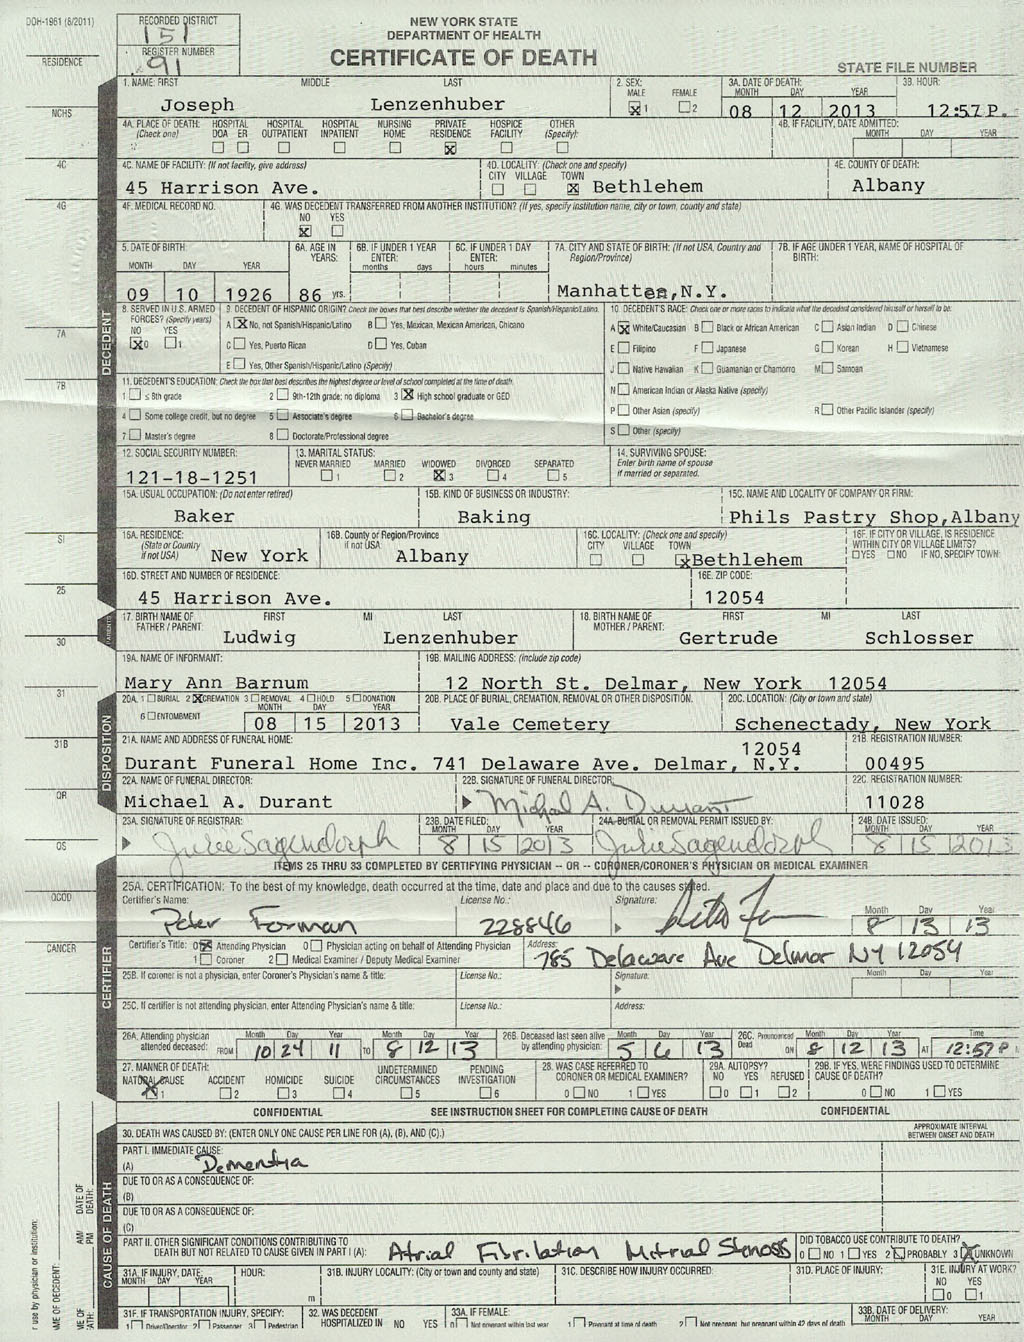 DOH-1961 (8/2011)
RECORDED DISTRICT
151
REGISTER NUMBER
91
NEW YORK STATE
DEPARTMENT OF HEALTH
CERTIFICATE OF DEATH
STATE FILE NUMBER
RESIDENCE
1. NAME: FIRST MIDDLE LAST
Joseph Lenzenhuber
2. SEX: MALE FEMALE
X 1 2
3A. DATE OF DEATH: MONTH DAY YEAR
08 12 2013
3B. HOUR:
12:57 P.
NCHS
4A. PLACE OF DEATH: (Check one) HOSPITAL DOA ER HOSPITAL OUTPATIENT HOSPITAL INPATIENT NURSING HOME PRIVATE RESIDENCE HOSPICE FACILITY OTHER (Specify):
X
4B. IF FACILITY, DATE ADMITTED: MONTH DAY YEAR
4C
4C. NAME OF FACILITY: (If not facility, give address)
45 Harrison Ave.
4D. LOCALITY: (Check one and specify) CITY VILLAGE TOWN
X Bethlehem
4E. COUNTY OF DEATH:
Albany
4G
4F. MEDICAL RECORD NO.
4G. WAS DECEDENT TRANSFERRED FROM ANOTHER INSTITUTION? (If yes, specify institution name, city or town, county and state)
NO YES
X
DECEDENT
5. DATE OF BIRTH: MONTH DAY YEAR
09 10 1926
6A. AGE IN YEARS:
86 yrs.
6B. IF UNDER 1 YEAR ENTER: months days
6C. IF UNDER 1 DAY ENTER: hours minutes
7A. CITY AND STATE OF BIRTH: (If not USA, Country and Region/Province)
Manhatten, N.Y.
7B. IF AGE UNDER 1 YEAR, NAME OF HOSPITAL OF BIRTH:
8. SERVED IN U.S. ARMED FORCES? (Specify years)
NO YES
X 0 1
9. DECEDENT OF HISPANIC ORIGIN? Check the boxes that best describe whether the decedent is Spanish/Hispanic/Latino.
A X No, not Spanish/Hispanic/Latino B Yes, Mexican, Mexican American, Chicano
C Yes, Puerto Rican D Yes, Cuban
E Yes, Other Spanish/Hispanic/Latino (Specify)
10. DECEDENT'S RACE: Check one or more races to indicate what the decedent considered himself or herself to be.
A X White/Caucasian B Black or African American C Asian Indian D Chinese
E Filipino F Japanese G Korean H Vietnamese
J Native Hawaiian K Guamanian or Chamorro M Samoan
N American Indian or Alaska Native (specify)
P Other Asian (specify) R Other Pacific Islander (specify)
S Other (specify)
7A
7B
11. DECEDENT'S EDUCATION: Check the box that best describes the highest degree or level of school completed at the time of death.
1 ≤ 8th grade 2 9th-12th grade; no diploma 3 X High school graduate or GED
4 Some college credit, but no degree 5 Associate's degree 6 Bachelor's degree
7 Master's degree 8 Doctorate/Professional degree
12. SOCIAL SECURITY NUMBER:
121-18-1251
13. MARITAL STATUS:
NEVER MARRIED MARRIED WIDOWED DIVORCED SEPARATED
1 2 X 3 4 5
14. SURVIVING SPOUSE: Enter birth name of spouse if married or separated.
15A. USUAL OCCUPATION: (Do not enter retired)
Baker
15B. KIND OF BUSINESS OR INDUSTRY:
Baking
15C. NAME AND LOCALITY OF COMPANY OR FIRM:
Phils Pastry Shop, Albany
SI
16A. RESIDENCE: (State or Country if not USA)
New York
16B. County or Region/Province if not USA:
Albany
16C. LOCALITY: (Check one and specify) CITY VILLAGE TOWN
X Bethlehem
16F. IF CITY OR VILLAGE, IS RESIDENCE WITHIN CITY OR VILLAGE LIMITS?
YES NO IF NO, SPECIFY TOWN:
25
16D. STREET AND NUMBER OF RESIDENCE:
45 Harrison Ave.
16E. ZIP CODE:
12054
30
PARENTS
17. BIRTH NAME OF FATHER / PARENT: FIRST MI LAST
Ludwig Lenzenhuber
18. BIRTH NAME OF MOTHER / PARENT: FIRST MI LAST
Gertrude Schlosser
19A. NAME OF INFORMANT:
Mary Ann Barnum
19B. MAILING ADDRESS: (include zip code)
12 North St. Delmar, New York 12054
31
31B
DISPOSITION
20A. 1 BURIAL 2 X CREMATION 3 REMOVAL 4 HOLD 5 DONATION
6 ENTOMBMENT MONTH DAY YEAR
08 15 2013
20B. PLACE OF BURIAL, CREMATION, REMOVAL OR OTHER DISPOSITION.
Vale Cemetery
20C. LOCATION: (City or town and state)
Schenectady, New York
21A. NAME AND ADDRESS OF FUNERAL HOME:
Durant Funeral Home Inc. 741 Delaware Ave. Delmar, N.Y. 12054
21B. REGISTRATION NUMBER:
00495
QR
22A. NAME OF FUNERAL DIRECTOR:
Michael A. Durant
22B. SIGNATURE OF FUNERAL DIRECTOR:
Michael A. Durant
22C. REGISTRATION NUMBER:
11028
QS
23A. SIGNATURE OF REGISTRAR:
Julie Sagendorph
23B. DATE FILED: MONTH DAY YEAR
8 15 2013
24A. BURIAL OR REMOVAL PERMIT ISSUED BY:
Julie Sagendorph
24B. DATE ISSUED: MONTH DAY YEAR
8 15 2013
ITEMS 25 THRU 33 COMPLETED BY CERTIFYING PHYSICIAN -- OR -- CORONER/CORONER'S PHYSICIAN OR MEDICAL EXAMINER
25A. CERTIFICATION: To the best of my knowledge, death occurred at the time, date and place and due to the causes stated.
QCOD
CANCER
CERTIFIER
Certifier's Name: License No.: Signature: Month Day Year
Peter Forman 228846 8 13 13
Certifier's Title: 0 X Attending Physician 0 Physician acting on behalf of Attending Physician
1 Coroner 2 Medical Examiner / Deputy Medical Examiner
Address:
785 Delaware Ave Delmar NY 12054
25B. If coroner is not a physician, enter Coroner's Physician's name & title: License No.: Signature: Month Day Year
25C. If certifier is not attending physician, enter Attending Physician's name & title: License No.: Address:
26A. Attending physician attended deceased: FROM Month Day Year TO Month Day Year
10 24 11 8 12 13
26B. Deceased last seen alive by attending physician: Month Day Year
5 6 13
26C. Pronounced Dead ON Month Day Year AT Time
8 12 13 12:57 P
27. MANNER OF DEATH:
NATURAL CAUSE ACCIDENT HOMICIDE SUICIDE UNDETERMINED CIRCUMSTANCES PENDING INVESTIGATION
X 1 2 3 4 5 6
28. WAS CASE REFERRED TO CORONER OR MEDICAL EXAMINER?
0 NO 1 YES
29A. AUTOPSY?
NO YES REFUSED
0 1 2
29B. IF YES, WERE FINDINGS USED TO DETERMINE CAUSE OF DEATH?
0 NO 1 YES
CONFIDENTIAL SEE INSTRUCTION SHEET FOR COMPLETING CAUSE OF DEATH CONFIDENTIAL
CAUSE OF DEATH
30. DEATH WAS CAUSED BY: (ENTER ONLY ONE CAUSE PER LINE FOR (A), (B), AND (C).)
APPROXIMATE INTERVAL BETWEEN ONSET AND DEATH
PART I. IMMEDIATE CAUSE:
(A) Dementia
DUE TO OR AS A CONSEQUENCE OF:
(B)
DUE TO OR AS A CONSEQUENCE OF:
(C)
PART II. OTHER SIGNIFICANT CONDITIONS CONTRIBUTING TO DEATH BUT NOT RELATED TO CAUSE GIVEN IN PART I (A):
Atrial Fibrilation Mitrial Stenoss
DID TOBACCO USE CONTRIBUTE TO DEATH?
0 NO 1 YES 2 PROBABLY 3 X UNKNOWN
31A. IF INJURY, DATE: MONTH DAY YEAR HOUR: m
31B. INJURY LOCALITY: (City or town and county and state)
31C. DESCRIBE HOW INJURY OCCURRED:
31D. PLACE OF INJURY:
31E. INJURY AT WORK?
NO YES
0 1
31F. IF TRANSPORTATION INJURY, SPECIFY:
1 Driver/Operator 2 Passenger 3 Pedestrian
32. WAS DECEDENT HOSPITALIZED IN NO YES
33A. IF FEMALE:
0 Not pregnant within last year 1 Pregnant at time of death 2 Not pregnant, but pregnant within 42 days of death
33B. DATE OF DELIVERY: MONTH DAY YEAR
r use by physician or institution:
AME OF DECEDENT:
ME OF ATH:
AM/ PM
DATE OF DEATH: